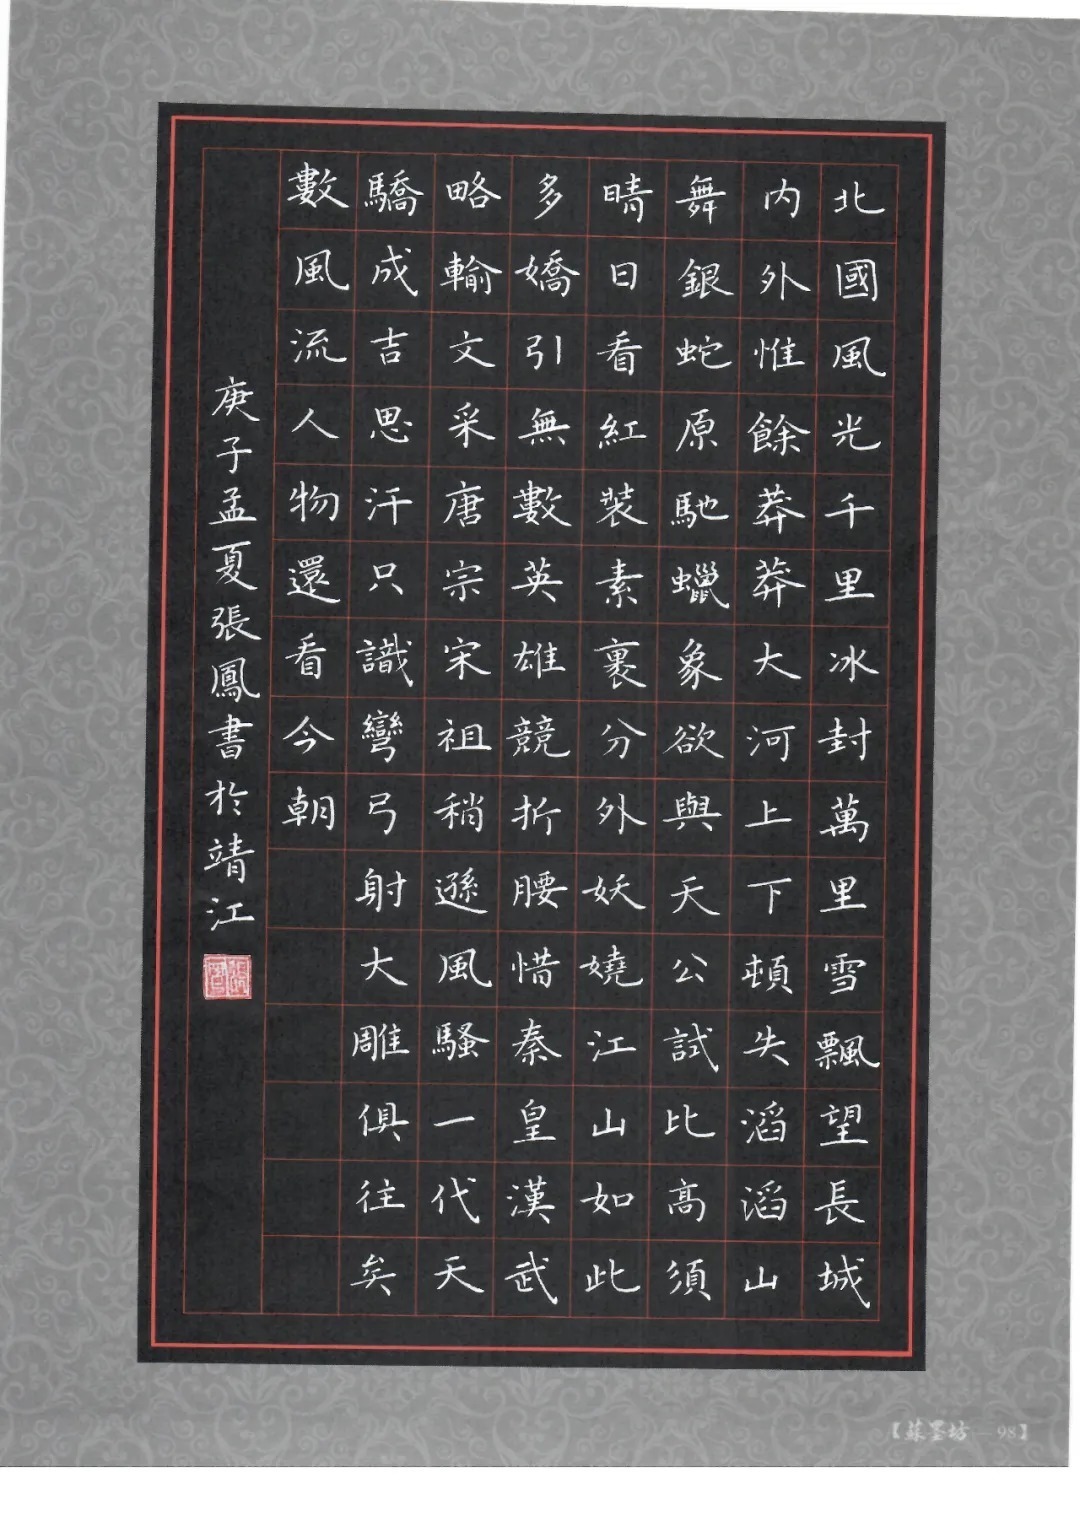 北國風光千里冰封萬里雪飄望長城
內外惟餘莽莽大河上下頓失滔滔山
舞銀蛇原馳蠟象欲與天公試比高須
晴日看紅裝素裹分外妖嬈江山如此
多嬌引無數英雄競折腰惜秦皇漢武
略輸文采唐宗宋祖稍遜風騷一代天
驕成吉思汗只識彎弓射大雕俱往矣
數風流人物還看今朝
庚子孟夏張鳳書於靖江
【蘇墨坊—98】